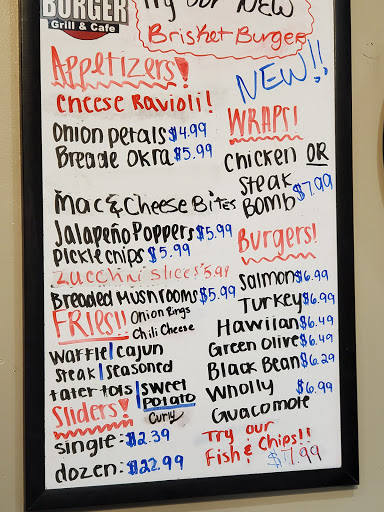 BURGER
Grill & Cafe
Try our NEW
Brisket Burger
Appetizers!
NEW!!
Cheese Ravioli!
Onion petals $4.99
Breade Okra $5.99
Mac & Cheese Bites
Jalapeño Poppers $5.99
Pickle chips $5.99
Zucchini slices 5.99
Breaded Mushrooms $5.99
FRIES!! Onion Rings
Chili Cheese
Waffle | Cajun
Steak | Seasoned
tater tots | Sweet
Potato
Curly
Sliders!
single: $2.39
dozen: $22.99
WRAPS!
Chicken OR
Steak
BOMB $7.99
Burgers!
Salmon $6.99
Turkey $6.99
Hawiian $6.49
Green Olive $6.49
Black Bean $6.29
Wholly $6.99
Guacamole
Try our
Fish & Chips!!
$7.99